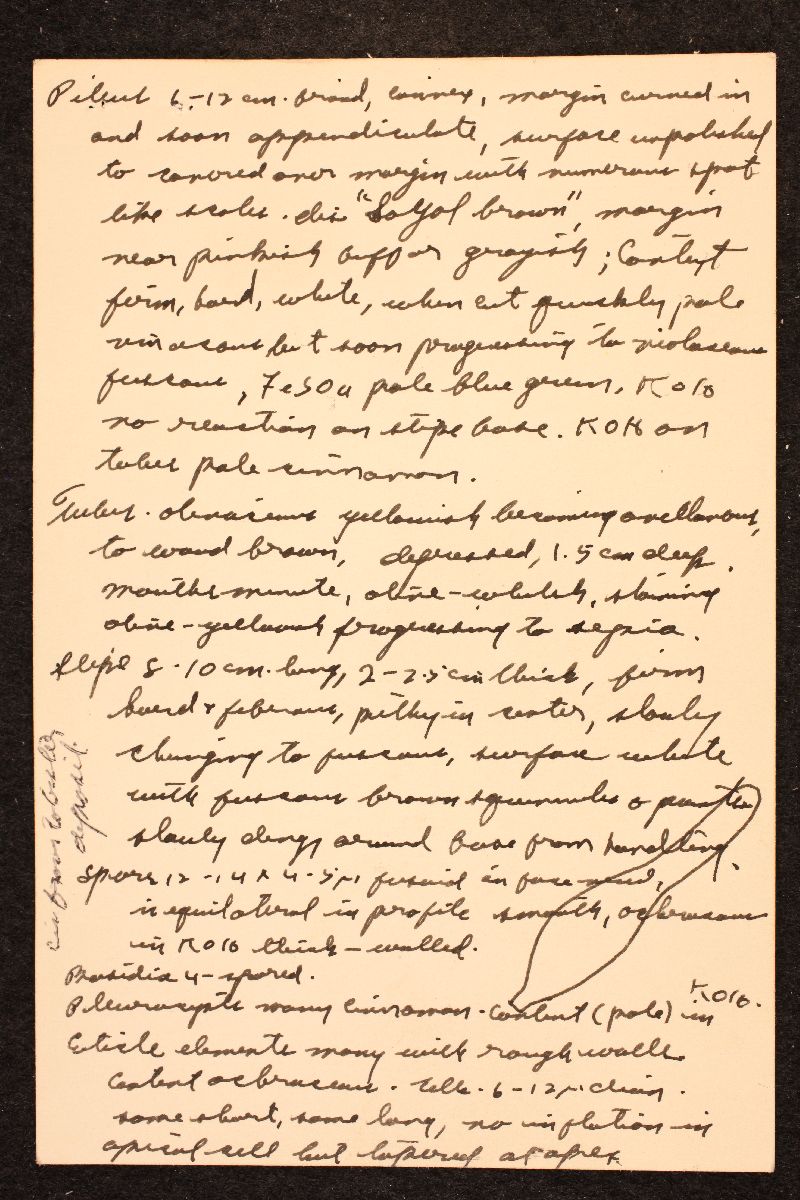 Pileus 6-12 cm. broad, convex, margin curved in
and soon appendiculate, surface unpolished
to covered over margin with numerous spot
like scales. disc "Sayal brown", margin
near pinkish buff or grayish; Context
firm, hard, white, when cut quickly pale
vinaceous but soon progressing to violaceous
fuscous, FeSO4 pale blue green, KOH
no reaction on stipe base. KOH on
tubes pale cinnamon.
Tubes. olivaceous yellowish becoming avellaneous,
to wood brown, depressed, 1.5 cm deep,
mouths minute, olive-whitish, staining
olive-yellowish progressing to sepia.
Stipe 8-10 cm. long, 2-2.5 cm thick, firm
hard & fibrous, pithy in center, slowly
changing to fuscous, surface white
with fuscous brown squamules & points
slowly dingy around base from handling.
Spores 12-14 x 4-5μ fusoid in face view,
inequilateral in profile smooth, ochraceous
in KOH thick-walled.
Basidia 4-spored.
Pleurocysts many cinnamon-content (pale) in KOH.
Cuticle elements many with rough walls
Content ochraceous. cells. 6-12μ diam.
some short, some long, no inflation in
apical cell but tapered at apex
deposit.